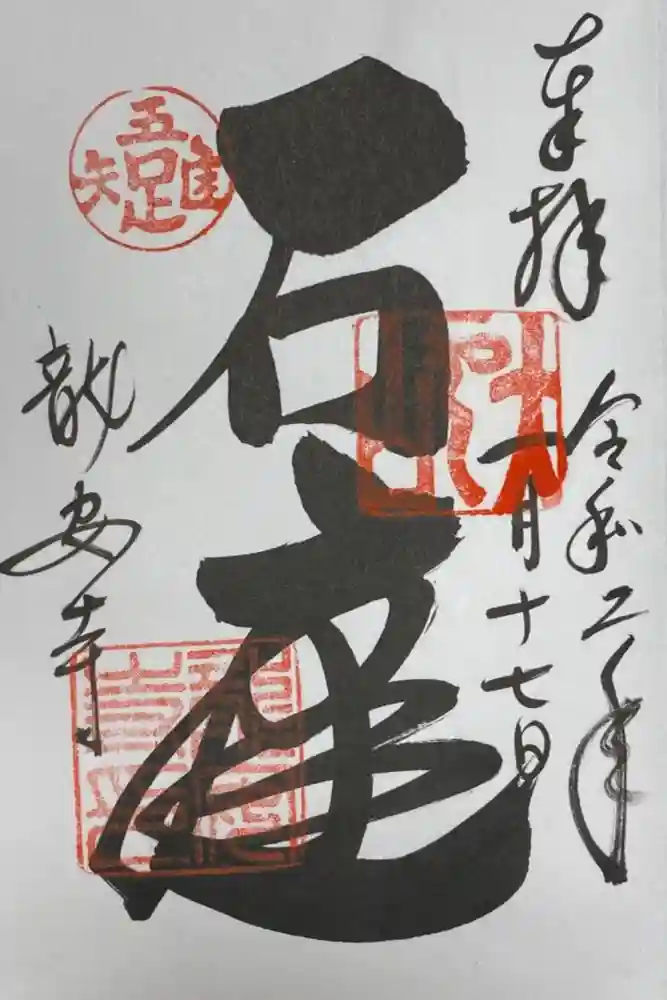 奉拝
令和二年
一月十七日
石庭
吾唯足知
龍安寺